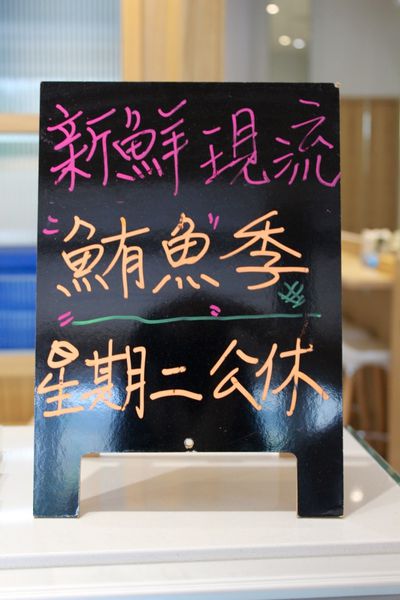 新鮮現流
"鮪魚"季
星期二公休